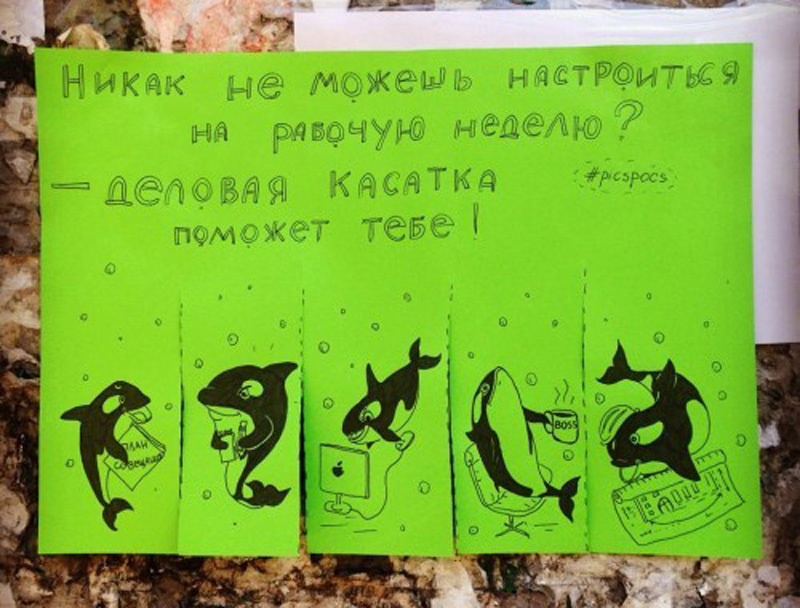 Никак не можешь настроиться
на рабочую неделю?
— деловая касатка
#picspocs
поможет тебе!
ПЛАН
СОВЕЩАНИЯ
BOSS